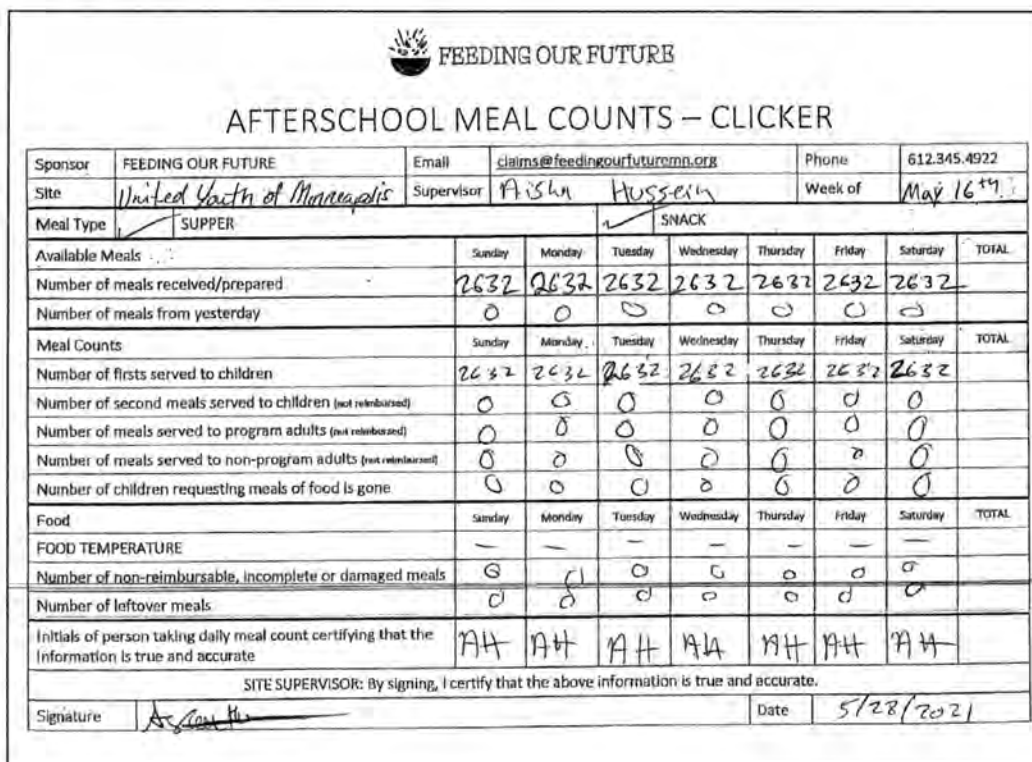 FEEDING OUR FUTURE
AFTERSCHOOL MEAL COUNTS – CLICKER
Sponsor FEEDING OUR FUTURE Email claims@feedingourfuturemn.org Phone 612.345.4922
Site United Youth of Minneapolis Supervisor Aisha Hussein Week of May 16th
Meal Type SUPPER SNACK
Available Meals Sunday Monday Tuesday Wednesday Thursday Friday Saturday TOTAL
Number of meals received/prepared 2632 2632 2632 2632 2632 2632 2632
Number of meals from yesterday 0 0 0 0 0 0 0
Meal Counts Sunday Monday Tuesday Wednesday Thursday Friday Saturday TOTAL
Number of firsts served to children 2632 2632 2632 2632 2632 2632 2632
Number of second meals served to children (not reimbursed) 0 0 0 0 0 0 0
Number of meals served to program adults (not reimbursed) 0 0 0 0 0 0 0
Number of meals served to non-program adults (not reimbursed) 0 0 0 0 0 0 0
Number of children requesting meals of food is gone 0 0 0 0 0 0 0
Food Sunday Monday Tuesday Wednesday Thursday Friday Saturday TOTAL
FOOD TEMPERATURE — — — — — — —
Number of non-reimbursable, incomplete or damaged meals 0 0 0 0 0 0 0
Number of leftover meals 0 0 0 0 0 0 0
Initials of person taking daily meal count certifying that the
information is true and accurate AH AH AH AH AH AH AH
SITE SUPERVISOR: By signing, I certify that the above information is true and accurate.
Signature Date 5/28/2021